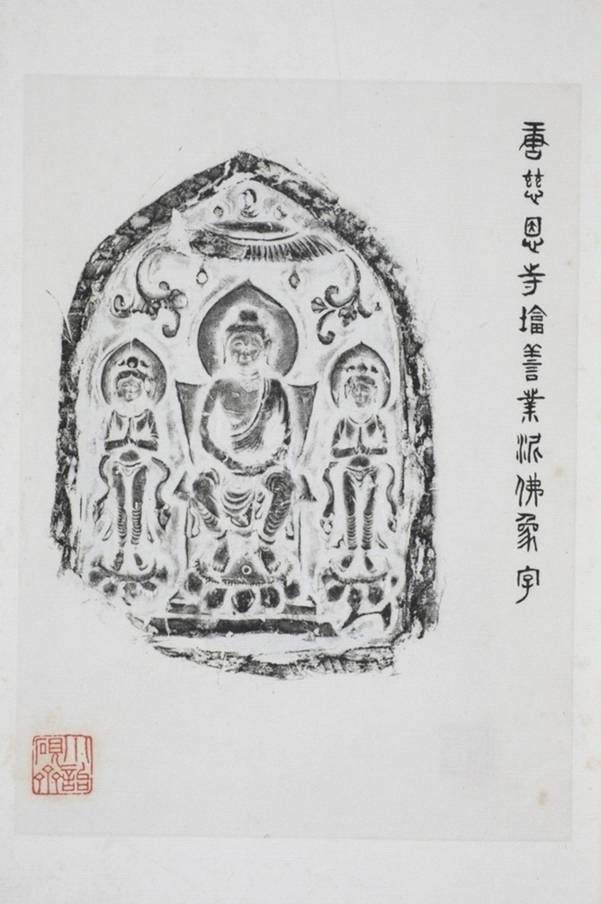 唐慈恩寺墖善業泥佛象字